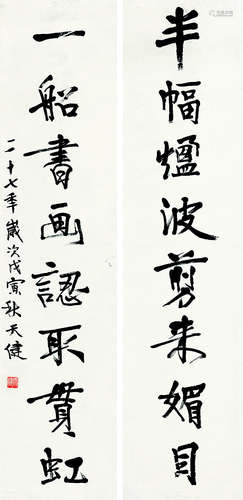 半幅煙波剪来媚目
一船書画認取貫虹
二十七年歲次戊寅秋天健